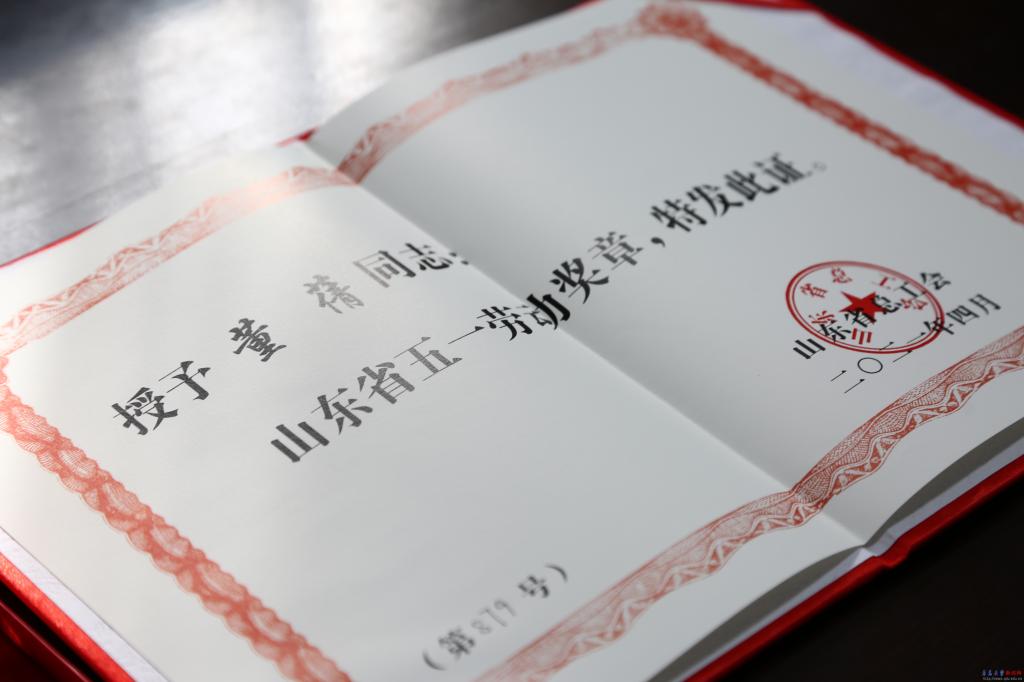 授予 董 蒨 同志:
山东省五一劳动奖章,特发此证。
山东省总工会
二〇二一年四月
(第879号)